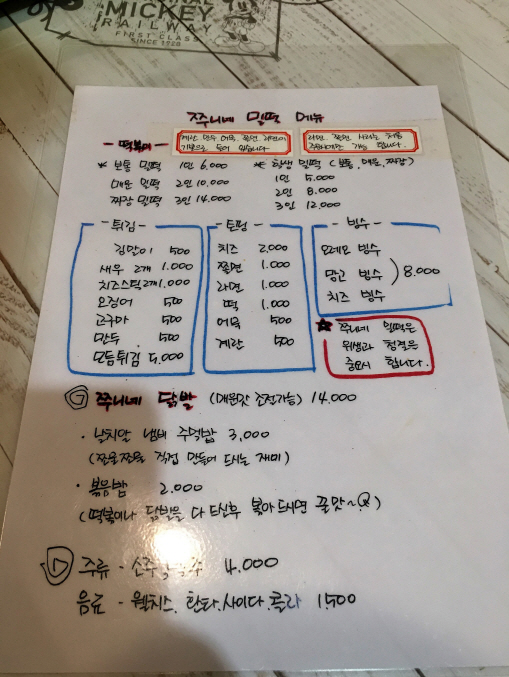 MICKEY
RAILWAY
FIRST CLASS
SINCE 1928
쭈니네 밀떡 메뉴
- 떡볶이 -
계란 만두 어묵 쫄면 라면이
기본으로 들어 있습니다
라면, 쫄면, 사리는 처음
주문시에만 가능 합니다.
* 보통 밀떡 1인 6,000
매운 밀떡 2인 10,000
짜장 밀떡 3인 14,000
* 학생 밀떡 (보통, 매운, 짜장)
1인 5,000
2인 8,000
3인 12,000
- 튀김 -
김말이 500
새우 2개 1,000
치즈스틱 2개 1,000
오징어 500
고구마 500
만두 500
모듬튀김 5,000
- 토핑 -
치즈 2,000
쫄면 1,000
라면 1,000
떡 1,000
어묵 500
계란 500
- 빙수 -
오레오 빙수
망고 빙수 ) 8,000
치즈 빙수
★ 쭈니네 밀떡은
위생과 청결을
중요시 합니다.
쭈니네 닭발 (매운맛 조절가능) 14,000
· 날치알 냄비 주먹밥 3,000
(쪼물쪼물 직접 만들어 드시는 재미)
· 볶음밥 2,000
(떡볶이나 닭발을 다 드신후 볶아 드시면 꿀맛~)
주류 - 4,000
음료 - 웰치스, 환타, 사이다, 콜라 1,500